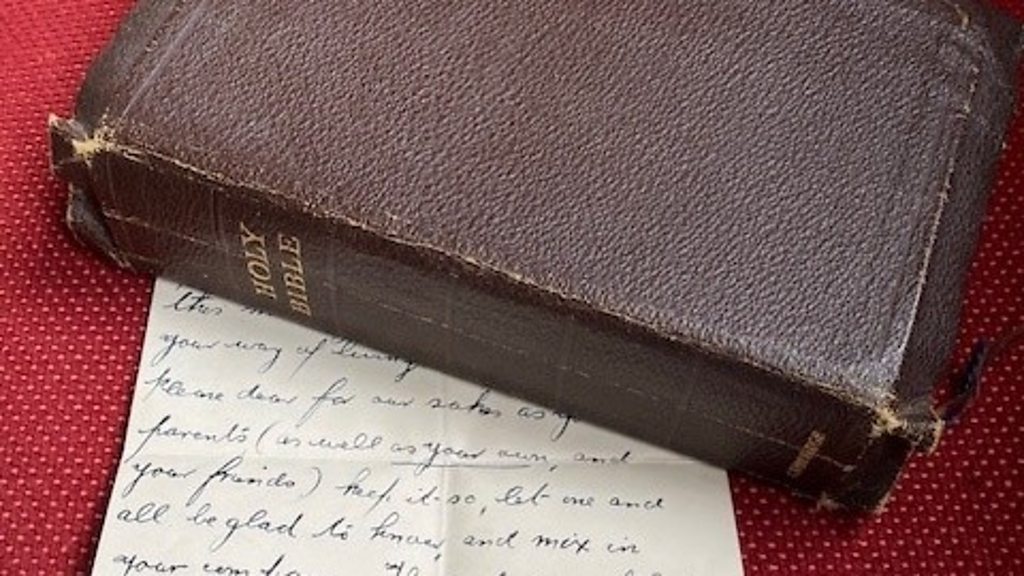 HOLY
BIBLE
this
your way of living
please dear for our sakes as
parents (as well as your own, and
your friends) keep it so, let one and
all be glad to know, and mix in
your